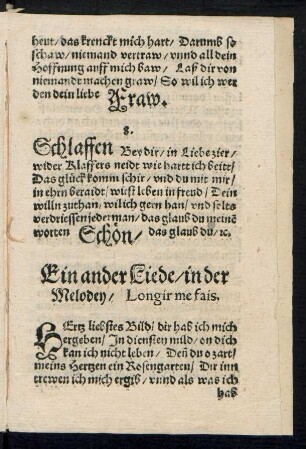 heut/ das krenckt mich hart/ Darumb so
schaw/ niemand vertraw/ vnnd all dein
Hoffnung auff mich baw/ Laß dir von
niemandt machen graw/ So wil ich wer
den dein liebe Fraw.
8.
Schlaffen Bey dir/ in Liebe zier/
wider Klaffers neidt wie hartt ich beitt/
Das glück komm schir/ vnd du mit mir/
in ehrn beraidt/ wüst leben in freud/ Dein
willn zuthan/ wil ich gern han/ vnd solts
verdriessen jederman/ das glaub du meinē
worten Schön/ das glaub du/ ꝛc.
Ein ander Liede/ in der
Melodey/ Longir me fais.
HErtz liebstes Bild/ dir hab ich mich
ergeben/ In diensten mild/ on dich
kan ich nicht leben/ Deñ du o zart/
meins Hertzen ein Rosengarten/ Dir inn
trewen ich mich ergib/ vnnd als was ich
hab